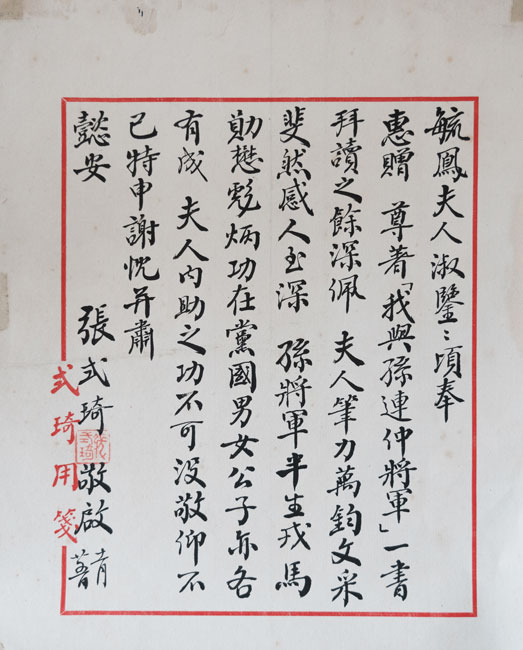 毓鳳夫人淑鑒：頃奉
惠贈 尊著「我與孫連仲將軍」一書
拜讀之餘深佩 夫人筆力萬鈞文采
斐然感人至深 孫將軍半生戎馬
勛懋彪炳功在黨國男女公子亦各
有成 夫人內助之功不可沒敬仰不
已特申謝忱并肅
懿安
張式琦敬啟
式琦用箋